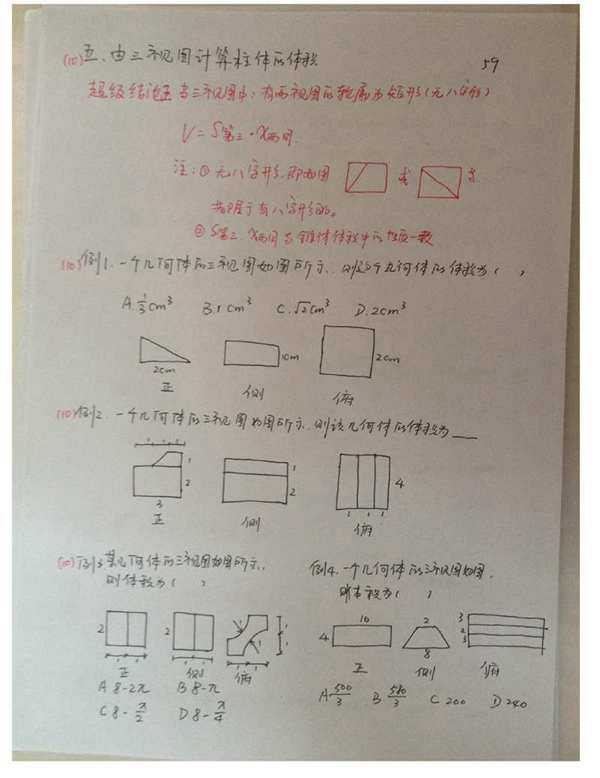 (10) 五、由三视图计算柱体的体积
59
超级结论五 当三视图中，有两视图的轮廓为矩形(无八字形)
V=S第三·X两同.
注：① 无八字形，即如图 或 等
② S第三、X两同与锥体体积中的性质一致
(10)例1.一个几何体的三视图如图所示，则这个几何体的体积为(    )
A.1/3cm³ B.1cm³ C.√2cm³ D.2cm³
1cm
2cm
2cm
正 侧 俯
(10)例2.一个几何体的三视图如图所示，则该几何体的体积为____
1 1 1
1
2
3
1
2
4
1 1 1
正 侧 俯
(10)例3.某几何体的三视图如图所示，
则体积为(    )
2 2
1 1 1 1 1 1
1
1
正 侧 俯
A 8-2π B 8-π
C 8-π/2 D 8-π/4
例4.一个几何体的三视图如图，
则体积为(    )
10 2 3
4 2
8 3
正 侧 俯
A 500/3 B 580/3 C 200 D 240